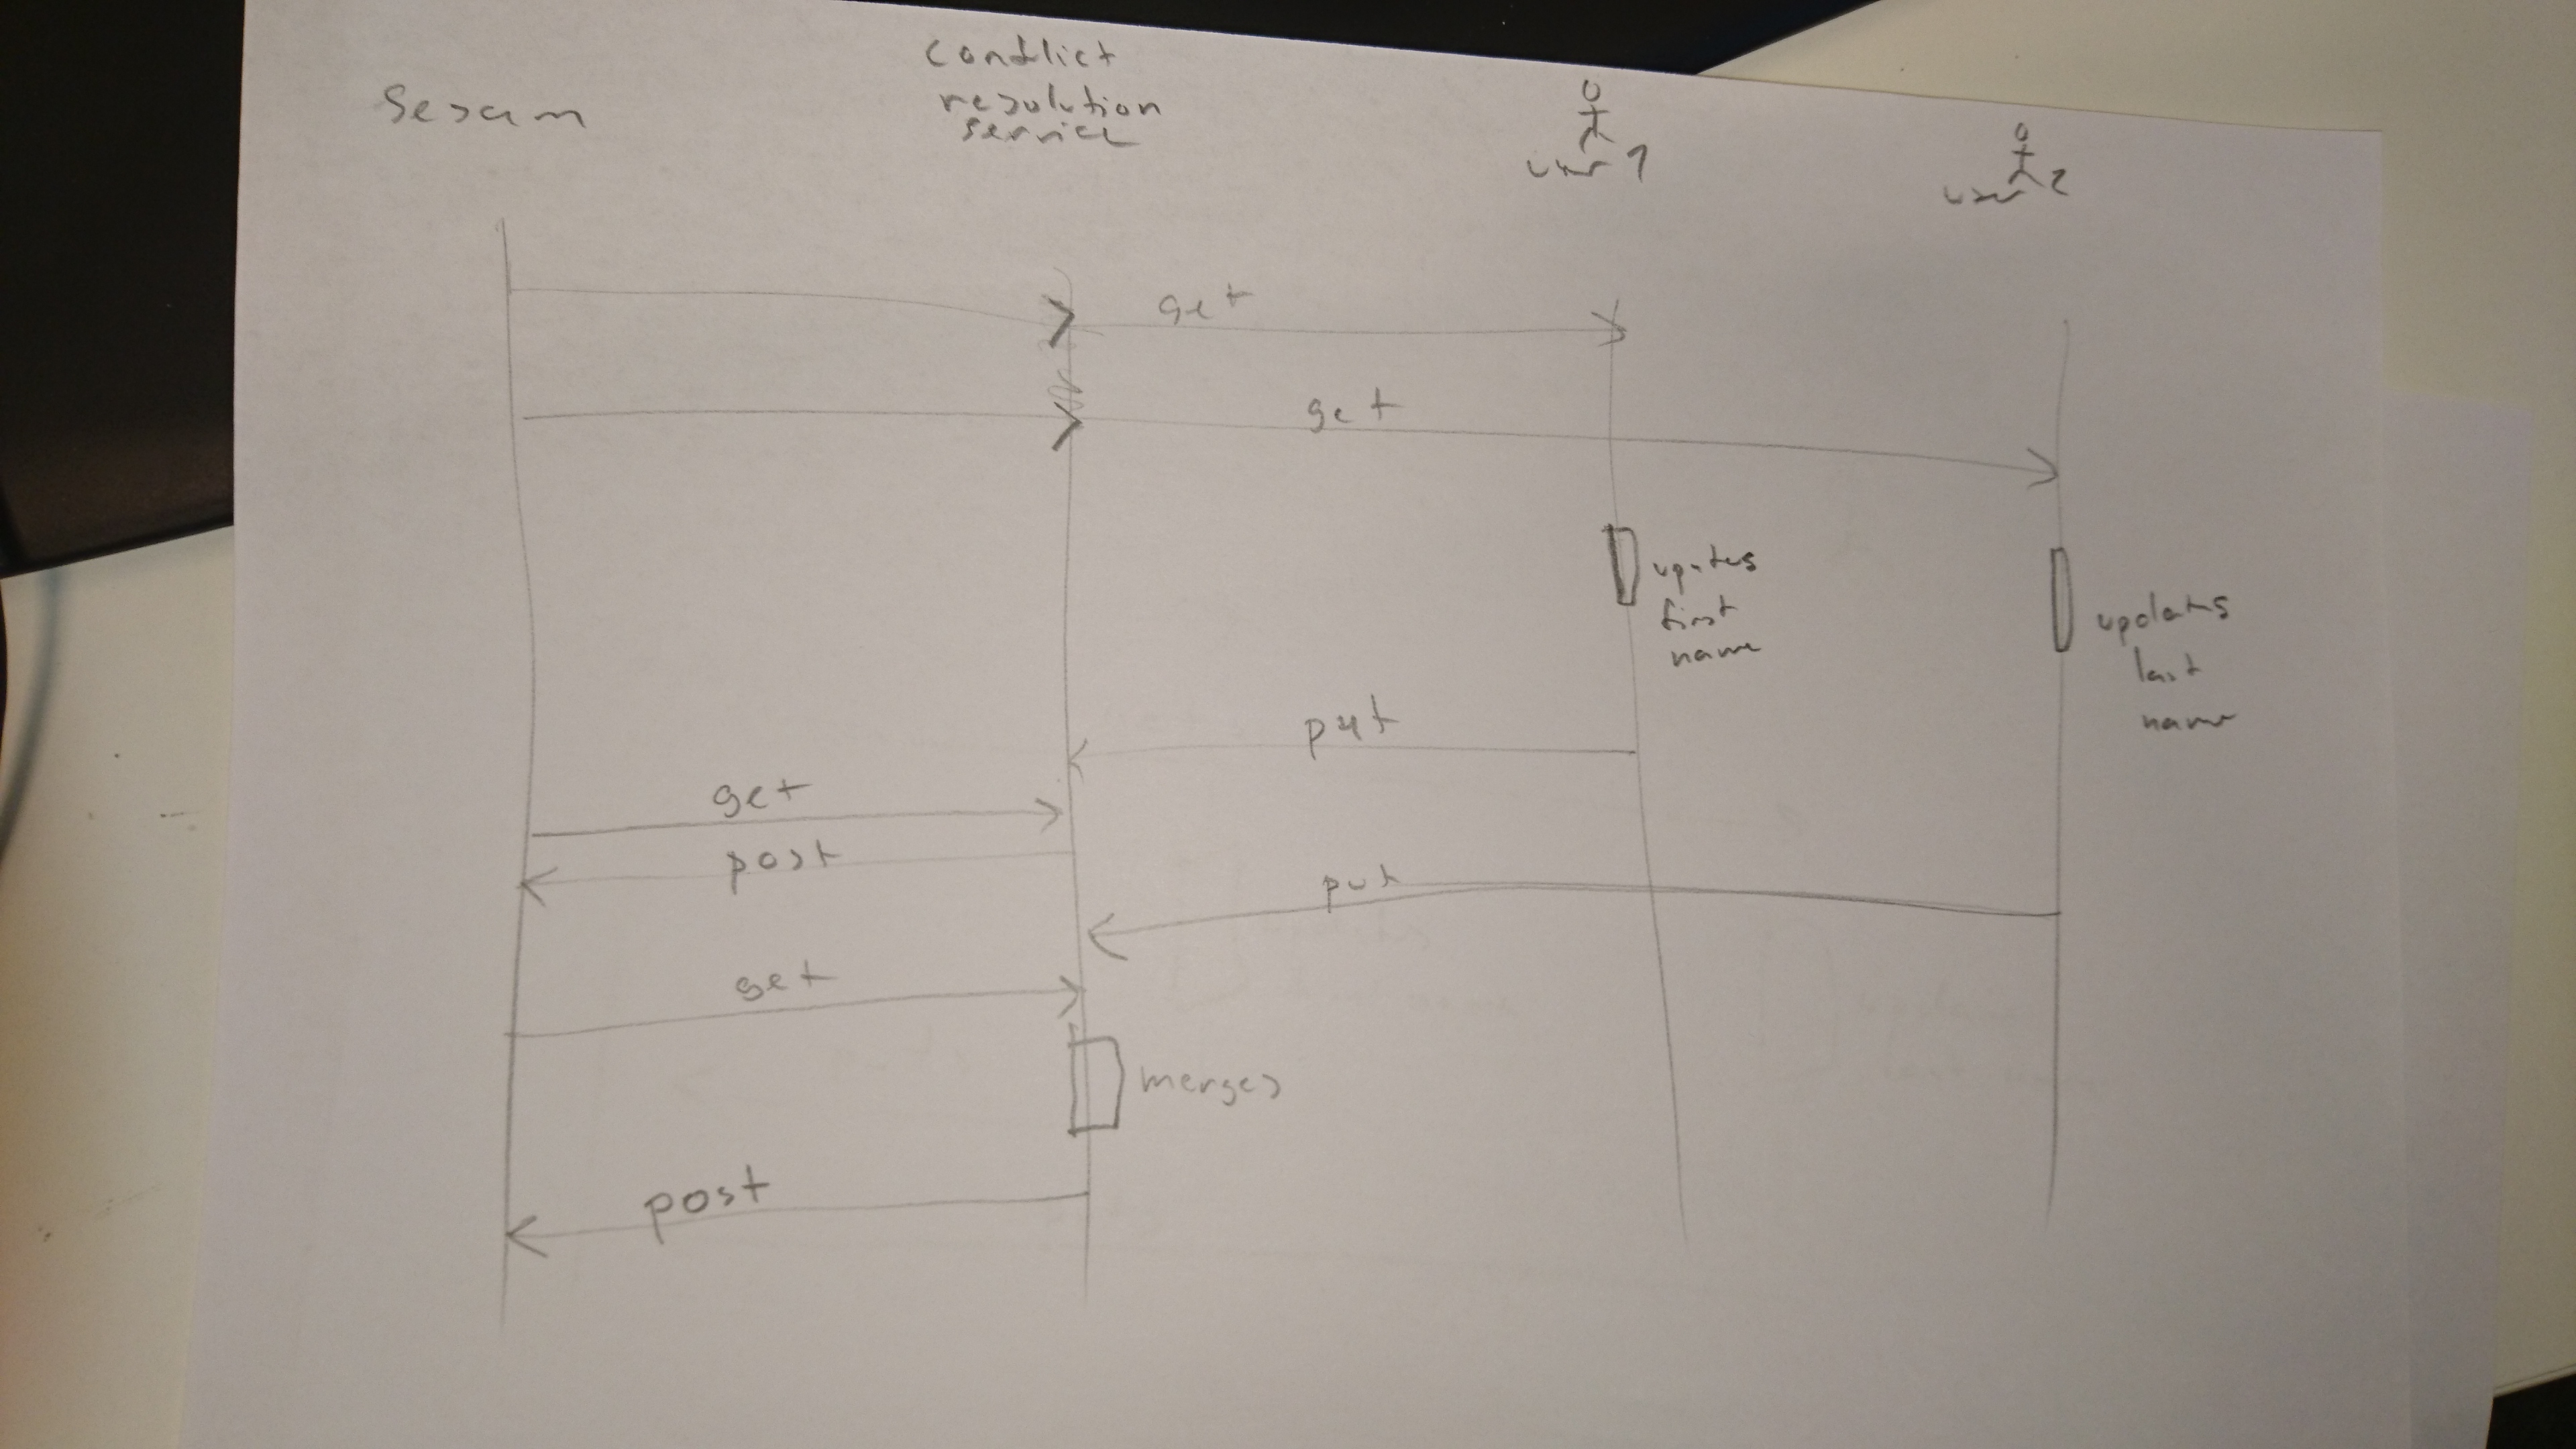 Sesam
Conflict
resolution
service
user 1
user 2
get
get
updates
first
name
updates
last
name
put
get
post
put
get
merges
post